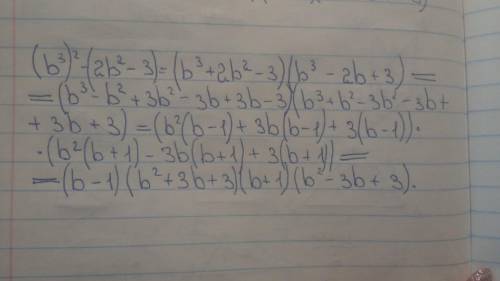 (b³)² - (2b² - 3) = (b³ + 2b² - 3)(b³ - 2b + 3) =
= (b³ - b² + 3b² - 3b + 3b - 3)(b³ + b² - 3b² - 3b +
+ 3b + 3) = (b²(b - 1) + 3b(b - 1) + 3(b - 1)) ·
· (b²(b + 1) - 3b(b + 1) + 3(b + 1)) =
= (b - 1)(b² + 3b + 3)(b + 1)(b² - 3b + 3).